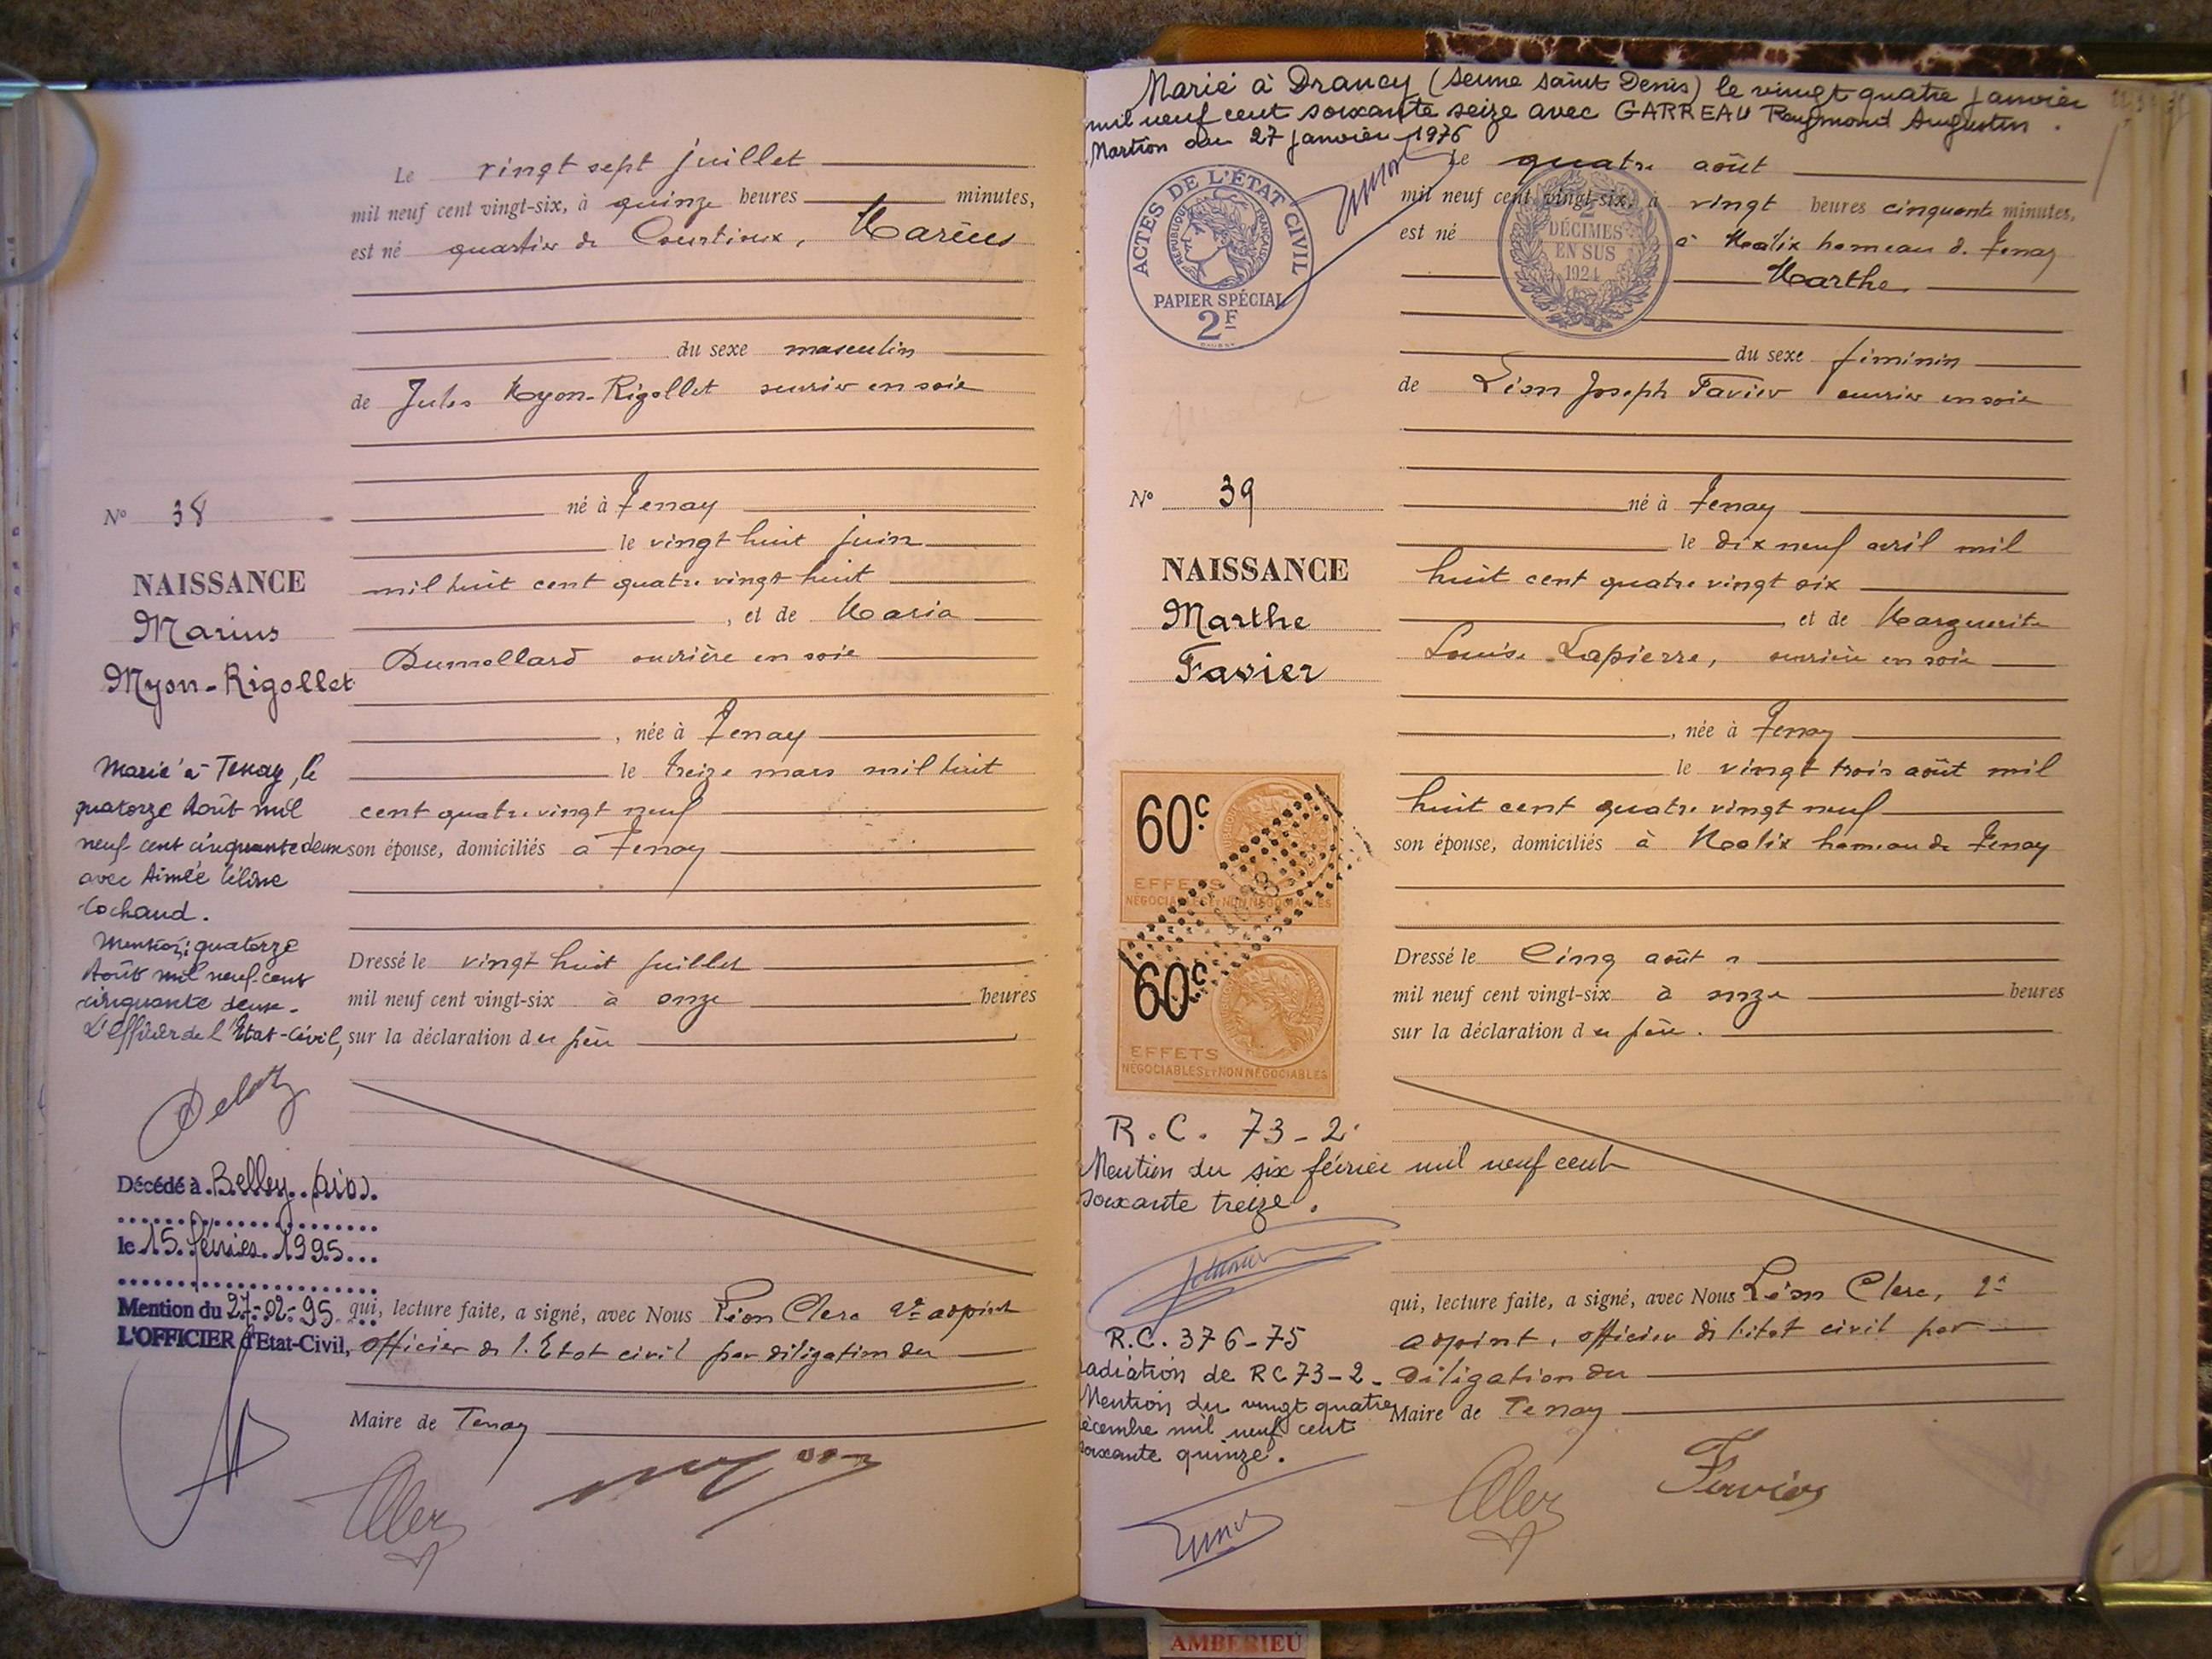 Le vingt sept juillet
mil neuf cent vingt-six, à quinze heures minutes,
est né quartier de Courtioux, Marius
du sexe masculin
de Jules Myon-Rigollet ouvrier en soie
né à Tenay
le vingt huit juin
mil huit cent quatre vingt huit
, et de Maria
Dumollard ouvrière en soie
, née à Tenay
le treize mars mil huit
cent quatre vingt neuf
son épouse, domiciliés à Tenay
Dressé le vingt huit juillet
mil neuf cent vingt-six à onze heures
sur la déclaration du père
qui, lecture faite, a signé, avec Nous Léon Clerc 2e adjoint
officier de l'Etat civil par déligation du
Maire de Tenay
N° 38
NAISSANCE
Marius
Myon-Rigollet
Marié à Tenay, le
quatorze Août mil
neuf cent cinquante deux
avec Aimée Céline
Cochaud.
Mention: quatorze
Août mil neuf cent
cinquante deux.
L'officier de l'Etat-Civil,
Décédé à Belley (Ain).
le 15 février 1995
Mention du 27-02-95
L'OFFICIER d'Etat-Civil,
Marié à Drancy (Seine Saint Denis) le vingt quatre janvier
mil neuf cent soixante seize avec GARREAU Raymond Augustin.
Mention du 27 janvier 1976
ACTES DE L'ÉTAT CIVIL
RÉPUBLIQUE FRANÇAISE
PAPIER SPÉCIAL
2F
2
DÉCIMES
EN SUS
1924
Le quatre août
mil neuf cent vingt-six, à vingt heures cinquante minutes,
est né à Malix hameau de Tenay
Marthe
du sexe féminin
de Léon Joseph Favier ouvrier en soie
né à Tenay
le dix neuf avril mil
huit cent quatre vingt six
et de Marguerite
Louise Lapierre, ouvrière en soie
, née à Tenay
le vingt trois août mil
huit cent quatre vingt neuf
son épouse, domiciliés à Malix hameau de Tenay
Dressé le Cinq août
mil neuf cent vingt-six à onze heures
sur la déclaration du père.
qui, lecture faite, a signé, avec Nous Léon Clerc, 2e
adjoint, officier de l'état civil par
déligation du
Maire de Tenay
Favier
N° 39
NAISSANCE
Marthe
Favier
60c
EFFETS
NÉGOCIABLES ET NON NÉGOCIABLES
60c
EFFETS
NÉGOCIABLES ET NON NÉGOCIABLES
R.C. 73-2
Mention du six février mil neuf cent
soixante treize.
R.C. 376-75
radiation de RC 73-2.
Mention du vingt quatre
décembre mil neuf cent
soixante quinze.
AMBERIEU